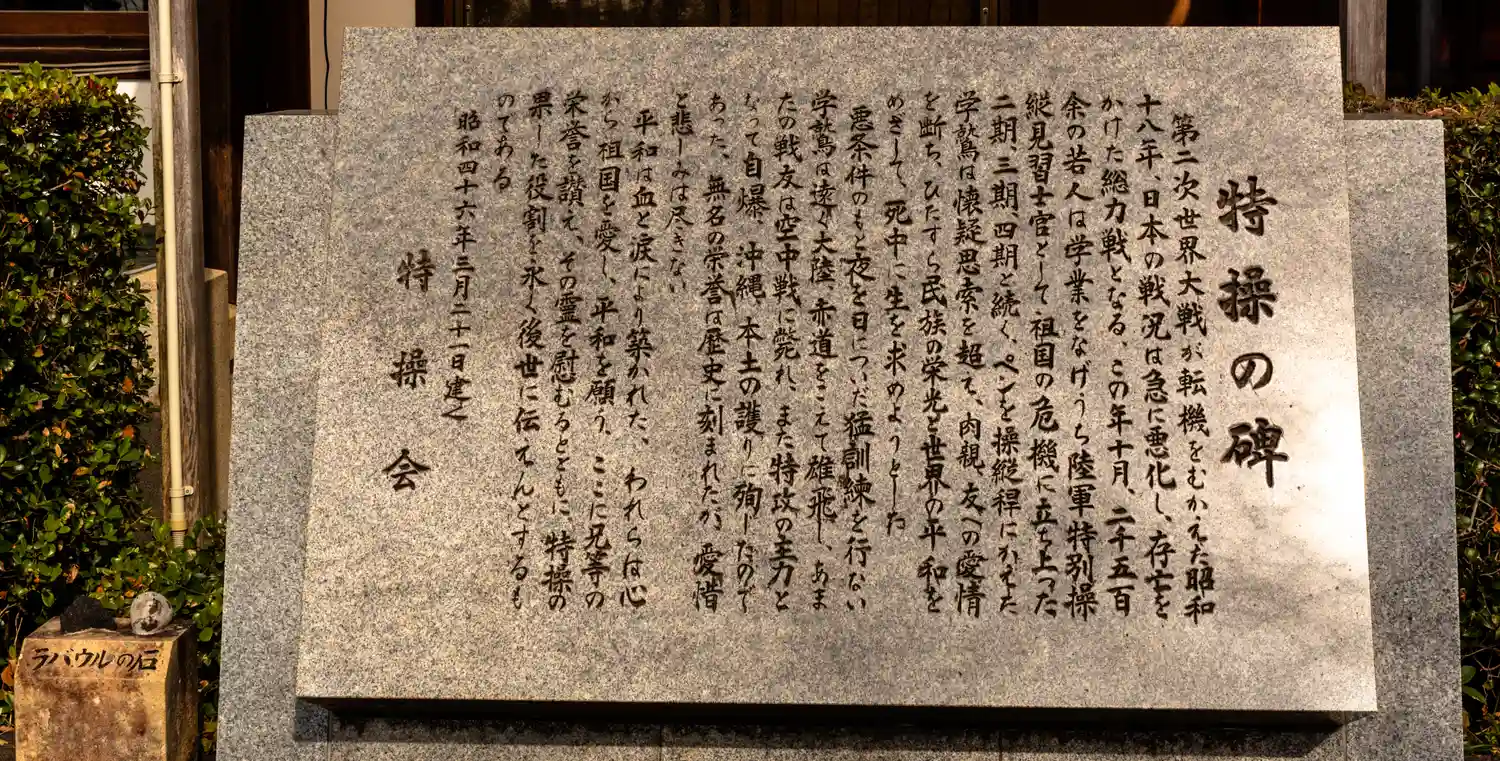 特操の碑
第二次世界大戦が転機をむかえた昭和
十八年、日本の戦況は急に悪化し、存亡を
かけた総力戦となる、この年十月、二千五百
余の若人は学業をなげうち陸軍特別操
縦見習士官として祖国の危機に立ち上った
二期、三期、四期と続く、ペンを操縦桿にかえた
学鷲は懐疑思索を超て、肉親、友への愛情
を断ち、ひたすら民族の栄光と世界の平和を
めざして、死中に生を求めようとした
悪条件のもと夜を日についだ猛訓練を行ない
学鷲は遠く大陸、赤道をこえて雄飛し、あま
たの戦友は空中戦に斃れ、また特攻の主力と
なって自爆、沖縄、本土の護りに殉じたので
あった、無名の栄誉は歴史に刻まれたが、愛惜
と悲しみは尽きない
平和は血と涙により築かれた、われらは心
から祖国を愛し、平和を願う、ここに兄等の
栄誉を讃え、その霊を慰むるとともに、特操の
果した役割を永く後世に伝えんとするも
のである
昭和四十六年三月二十一日建之
特操会
ラバウルの石